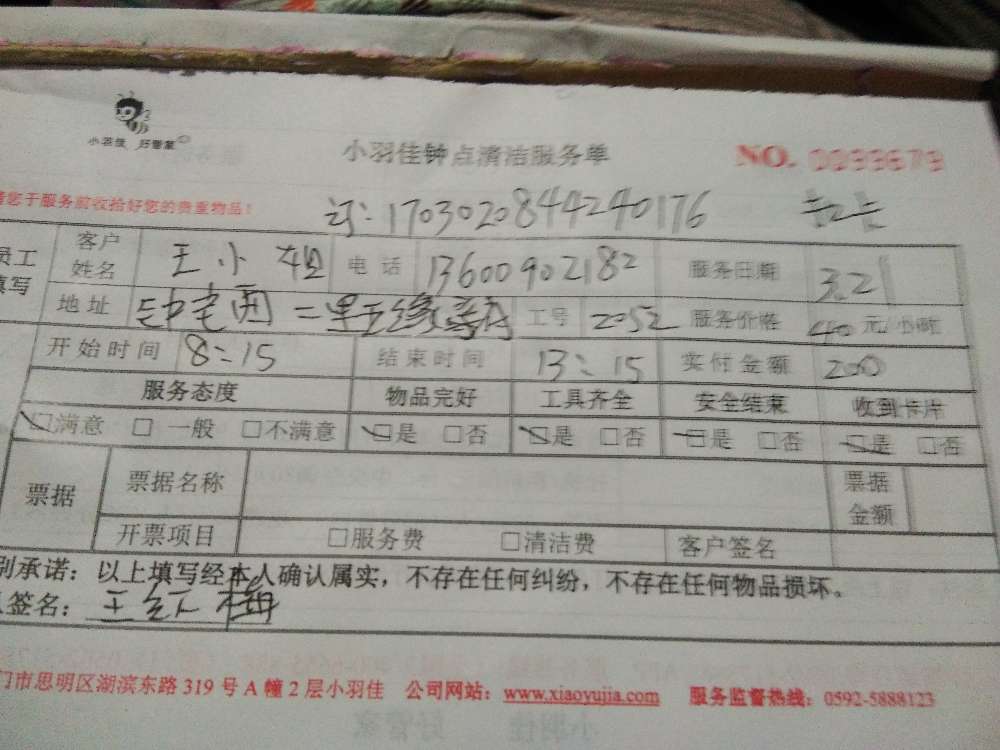 小羽佳 好管家
小羽佳钟点清洁服务单 NO. 0099679
请您于服务前收拾好您的贵重物品!
订: 170302084424240176
员工填写 客户姓名 王小姐 电话 13600902182 服务日期 3.21
地址 钟宅西二里五缘 工号 2052 服务价格 40元/小时
开始时间 8:15 结束时间 13:15 实付金额 200
服务态度 物品完好 工具齐全 安全结束 收到卡片
□满意 □一般 □不满意 □是 □否 □是 □否 □是 □否 □是 □否
票据 票据名称 票据金额
开票项目 □服务费 □清洁费 客户签名
别承诺:以上填写经本人确认属实,不存在任何纠纷,不存在任何物品损坏。
签名: 王红梅
门市思明区湖滨东路319号A幢2层小羽佳 公司网站:www.xiaoyujia.com 服务监督热线:0592-5888123